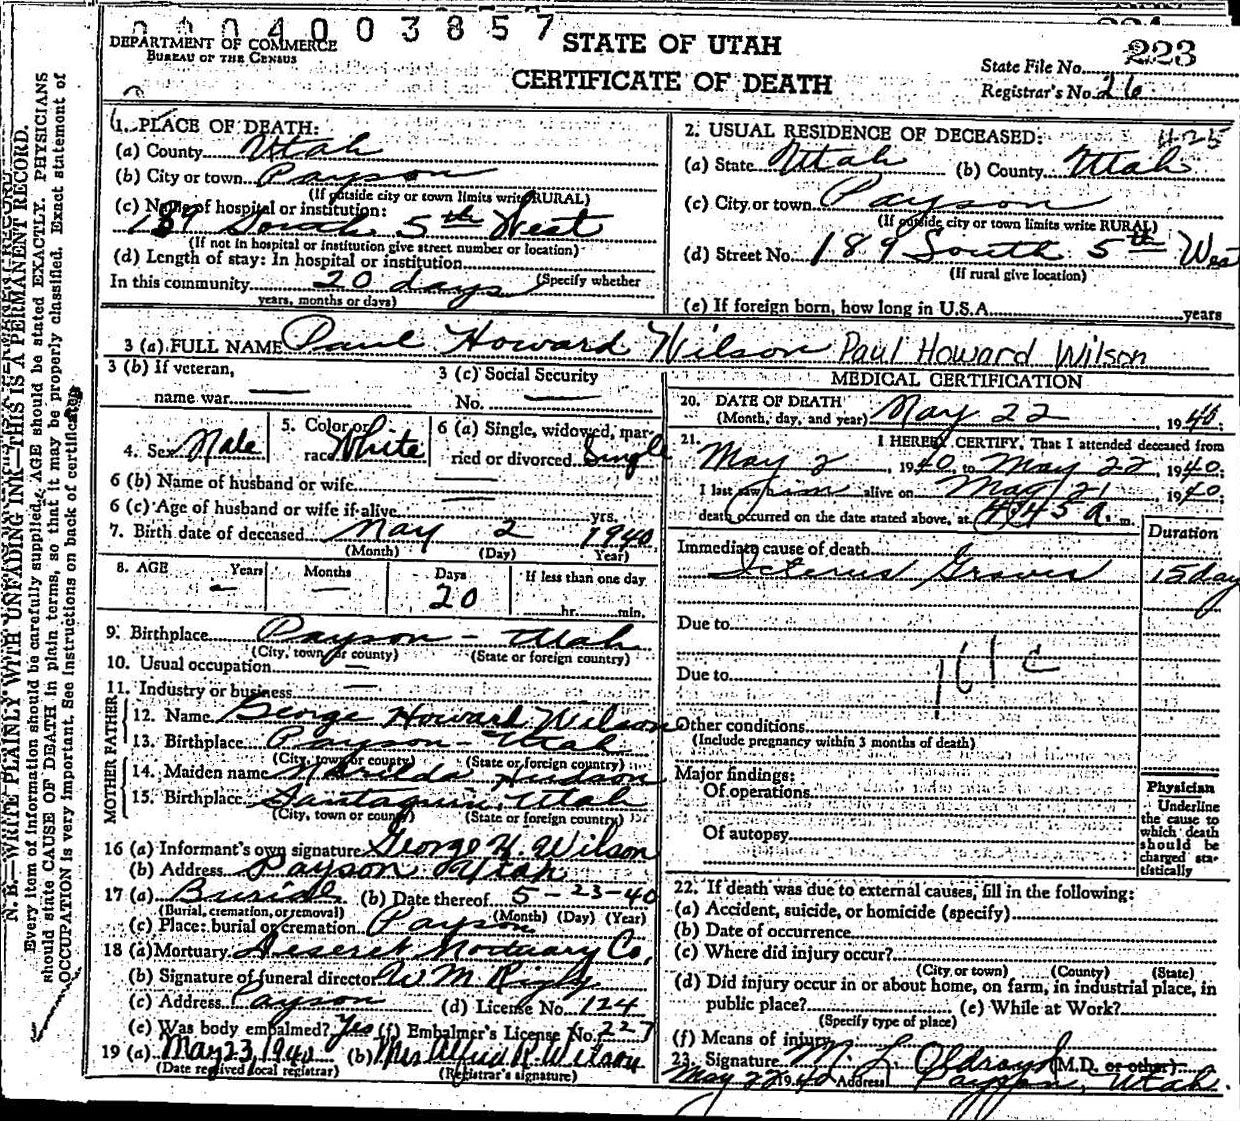 0 0 0 4 0 0 3 8 5 7
DEPARTMENT OF COMMERCE
BUREAU OF THE CENSUS
STATE OF UTAH
CERTIFICATE OF DEATH
State File No. 223
Registrar's No. 26
1. PLACE OF DEATH:
(a) County Utah
(b) City or town Payson
(If outside city or town limits write RURAL)
(c) Name of hospital or institution:
189 South 5th West
(If not in hospital or institution give street number or location)
(d) Length of stay: In hospital or institution
In this community 20 days (Specify whether
years, months or days)
2. USUAL RESIDENCE OF DECEASED: 425
(a) State Utah (b) County Utah
(c) City or town Payson
(If outside city or town limits write RURAL)
(d) Street No. 189 South 5th Wes
(If rural give location)
(e) If foreign born, how long in U.S.A. years
3 (a) FULL NAME Paul Howard Wilson Paul Howard Wilson
3 (b) If veteran,
name war. —
3 (c) Social Security
No. —
4. Sex Male
5. Color or
race White
6 (a) Single, widowed, mar-
ried or divorced Single
6 (b) Name of husband or wife —
6 (c) Age of husband or wife if alive — yrs.
7. Birth date of deceased May 2 1940
(Month) (Day) Year)
8. AGE Years Months Days If less than one day
— — 20 hr. min.
9. Birthplace Payson - Utah
(City, town or county) (State or foreign country)
10. Usual occupation —
11. Industry or business —
FATHER
12. Name George Howard Wilson
13. Birthplace Payson - Utah
(City, town or county) (State or foreign country)
MOTHER
14. Maiden name Hudson
15. Birthplace Santaquin, Utah
(City, town or county) (State or foreign country)
16 (a) Informant's own signature George H. Wilson
(b) Address Payson Utah
17 (a) Burial (b) Date thereof 5-23-40
(Burial, cremation, or removal) (Month) (Day) (Year)
(c) Place: burial or cremation Payson
18 (a) Mortuary Deseret Mortuary Co.
(b) Signature of funeral director W M Rigby
(c) Address Payson (d) License No. 124
(e) Was body embalmed? Yes (f) Embalmer's License No. 227
19 (a) May 23, 1940 (b) Mrs Alfred R. Wilson
(Date received local registrar) (Registrar's signature)
MEDICAL CERTIFICATION
20. DATE OF DEATH
(Month, day, and year) May 22, 1940;
21. I HEREBY CERTIFY, That I attended deceased from
May 2, 1940, to May 22, 1940;
I last saw him alive on May 21 1940;
death occurred on the date stated above, at 4:45 a. m.
Duration
Immediate cause of death
Icterus Gravis 15 day
Due to
161 c
Due to
Other conditions
(Include pregnancy within 3 months of death)
Major findings:
Of operations
Of autopsy
Physician
Underline
the cause to
which death
should be
charged sta-
tistically
22. If death was due to external causes, fill in the following:
(a) Accident, suicide, or homicide (specify)
(b) Date of occurrence
(c) Where did injury occur?
(City or town) (County) (State)
(d) Did injury occur in or about home, on farm, in industrial place, in
public place? (e) While at Work?
(Specify type of place)
(f) Means of injury
23. Signature M. L. Oldroyd (M.D. or other)
May 22 1940 Address Payson, Utah.
N. B.—WRITE PLAINLY WITH UNFADING INK—THIS IS A PERMANENT RECORD.
Every item of information should be carefully supplied. AGE should be stated EXACTLY. PHYSICIANS
should state CAUSE OF DEATH in plain terms, so that it may be properly classified. Exact statement of
OCCUPATION is very important. See instructions on back of certificate.